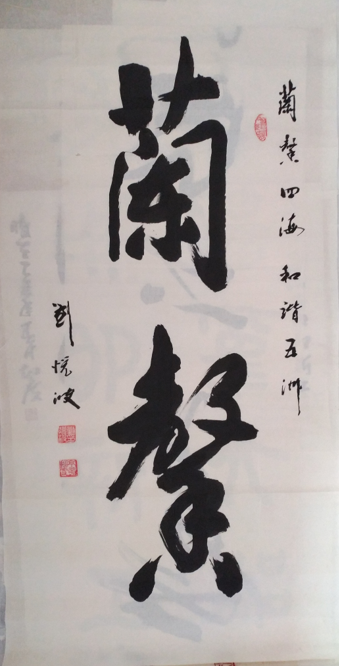 蘭馨
蘭馨四海和谐五洲
劉悦波